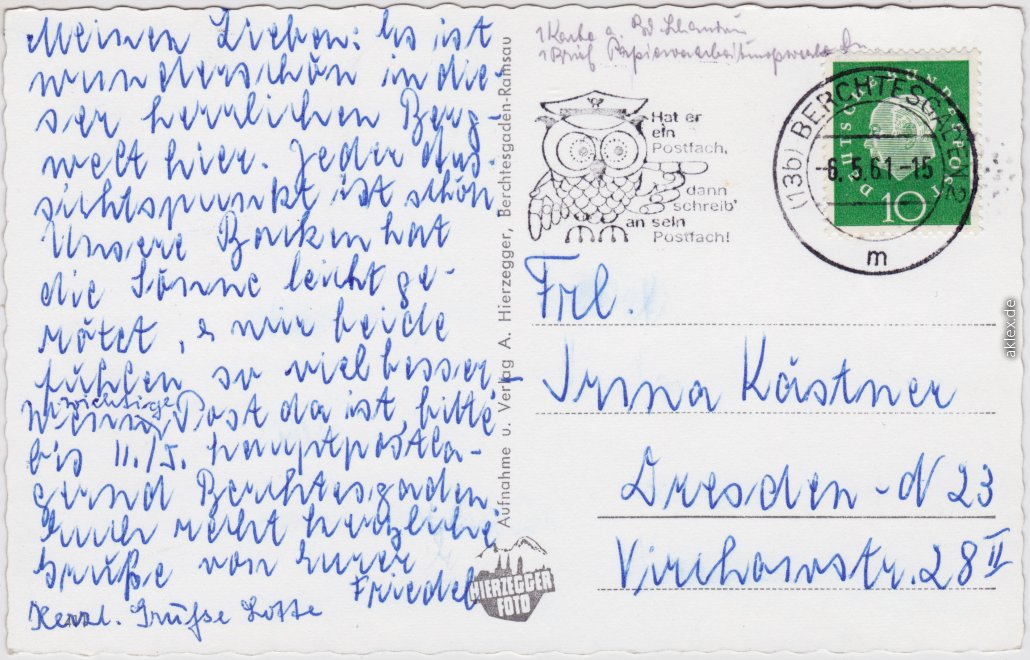 Meinen Lieben: Es ist
wunderschön in die-
ser herrlichen Berg-
welt hier. Jeder Aus-
sichtspunkt ist schön
Unsere Backen hat
die Sonne leicht ge-
rötet, u wir beide
fühlen so viel besser -
Wenn wichtige Post da ist, bitte
bis 11./5. hauptpostla-
gernd Berchtesgaden
Euch recht herzliche
Grüße von Eurer
Friedel
Herzl. Grüsse Lotte
Aufnahme u. Verlag A. Hierzegger, Berchtesgaden-Ramsau
HIERZEGGER
FOTO
1 Karte a. Bd Schandau
1 Brief Papierverarbeitungswerke
Hat er
ein
Postfach,
dann
schreib'
an sein
Postfach!
(13b) BERCHTESGADEN 2
-6.5.61-15
m
DEUTSCHE BUNDESPOST
10
Frl.
Irma Kästner
Dresden-N 23
Virchowstr. 28 II
aklex.de